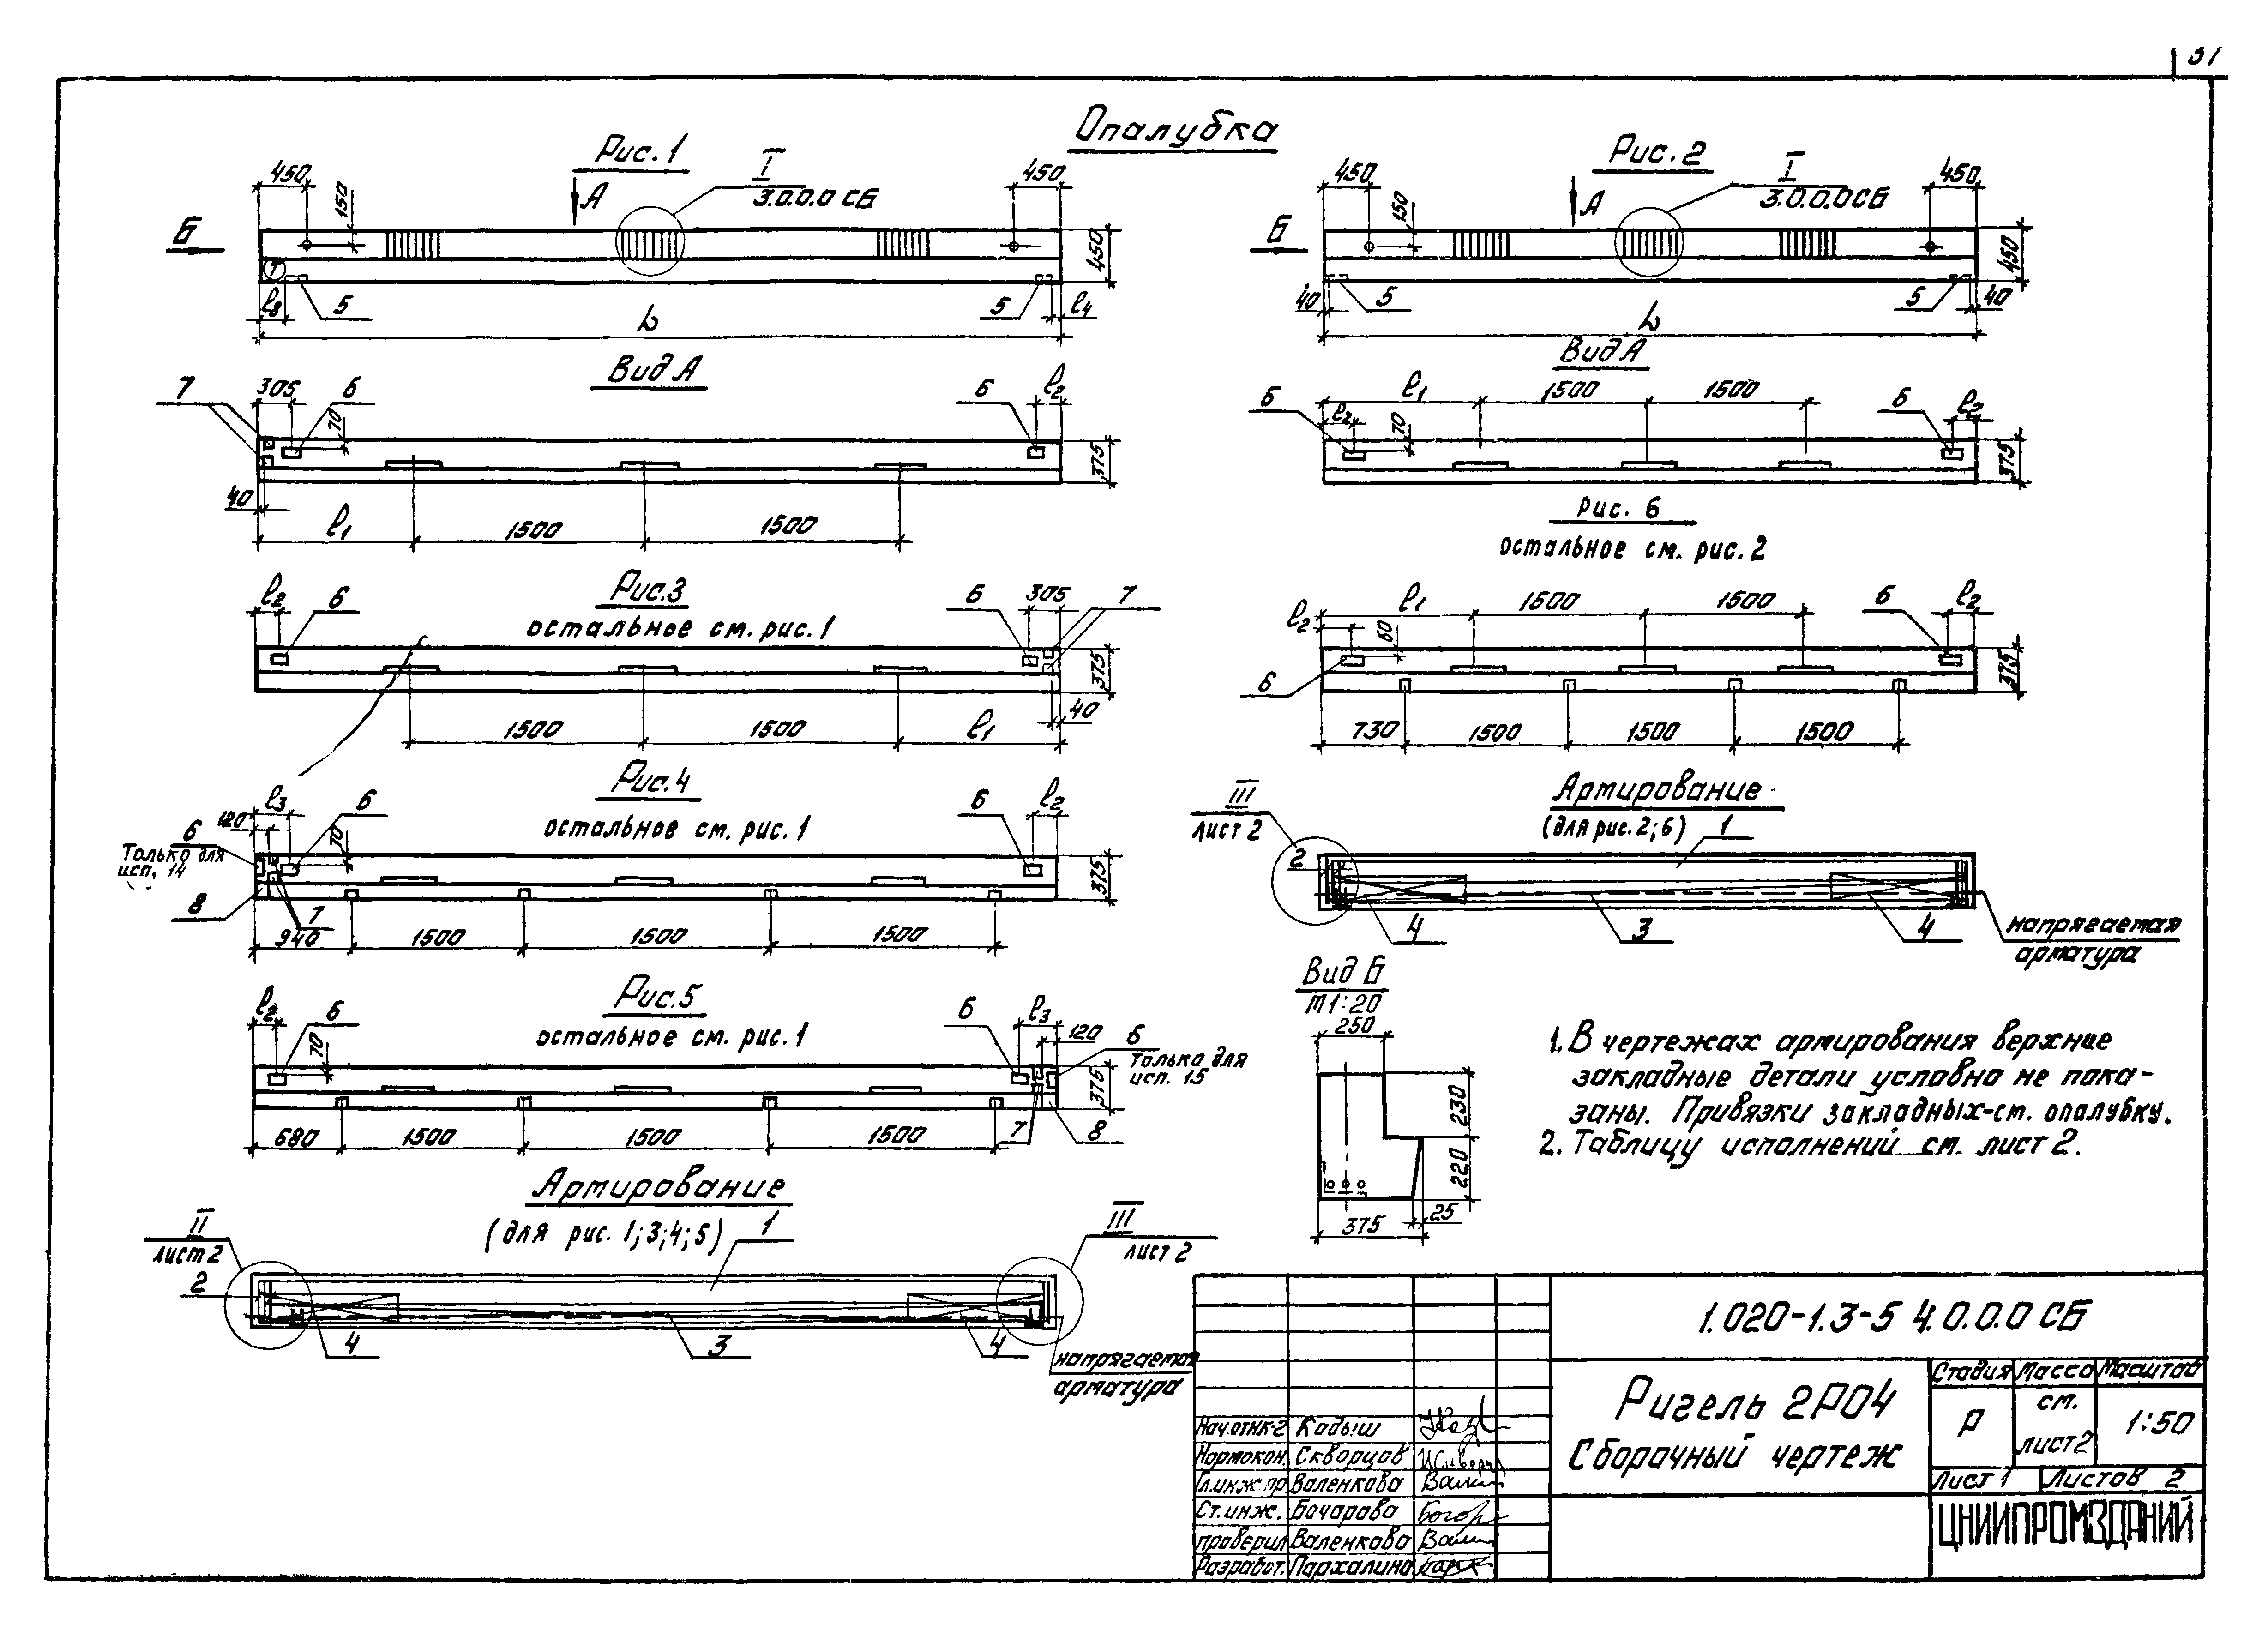 Опалубка
Рис. 1
450
150
А
I
3.0.0.0 СБ
450
Б
450
5
5
l8
l4
L
Вид А
7
305
6
70
6
l2
375
40
l1
1500
1500
Рис.3
остальное см. рис. 1
l2
6
6
305
7
375
40
1500
1500
l1
Рис.4
остальное см. рис. 1
l3
120
6
6
70
6
l2
Только для
исп. 14
8
7
375
940
1500
1500
1500
Рис.5
остальное см. рис. 1
l2
6
70
6
l3
120
6
Только для
исп. 15
375
680
1500
1500
1500
7
8
Армирование
(для рис. 1; 3; 4; 5)
II
лист 2
2
1
III
лист 2
4
3
4
напрягаемая
арматура
Рис. 2
450
150
А
I
3.0.0.0 СБ
450
Б
450
40
5
5
40
L
Вид А
6
l1
1500
1500
6
l2
l2
70
375
Рис. 6
остальное см. рис. 2
l2
l1
1500
1500
6
l2
60
6
375
730
1500
1500
1500
Армирование
(для рис. 2; 6)
III
лист 2
2
1
4
3
4
напрягаемая
арматура
Вид Б
М 1:20
250
230
220
25
375
1. В чертежах армирования верхние
закладные детали условно не пока-
заны. Привязки закладных-см. опалубку.
2. Таблицу исполнений см. лист 2.
1.020-1.3-5 4.0.0.0 СБ
Ригель 2Р04
Сборочный чертеж
Стадия Масса Масштаб
Р см. лист 2 1:50
Лист 1 Листов 2
ЦНИИПРОМЗДАНИЙ
Нач.отнк-2 Кадыш
Нормокон. Скворцов
Гл.инж.пр. Валенкова
Ст.инж. Бочарова
проверил Валенкова
Разработ. Пархалина